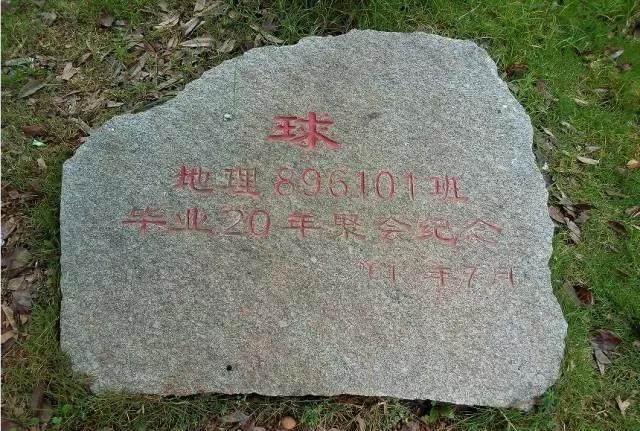 球
地理896101班
毕业20年聚会纪念
年7月